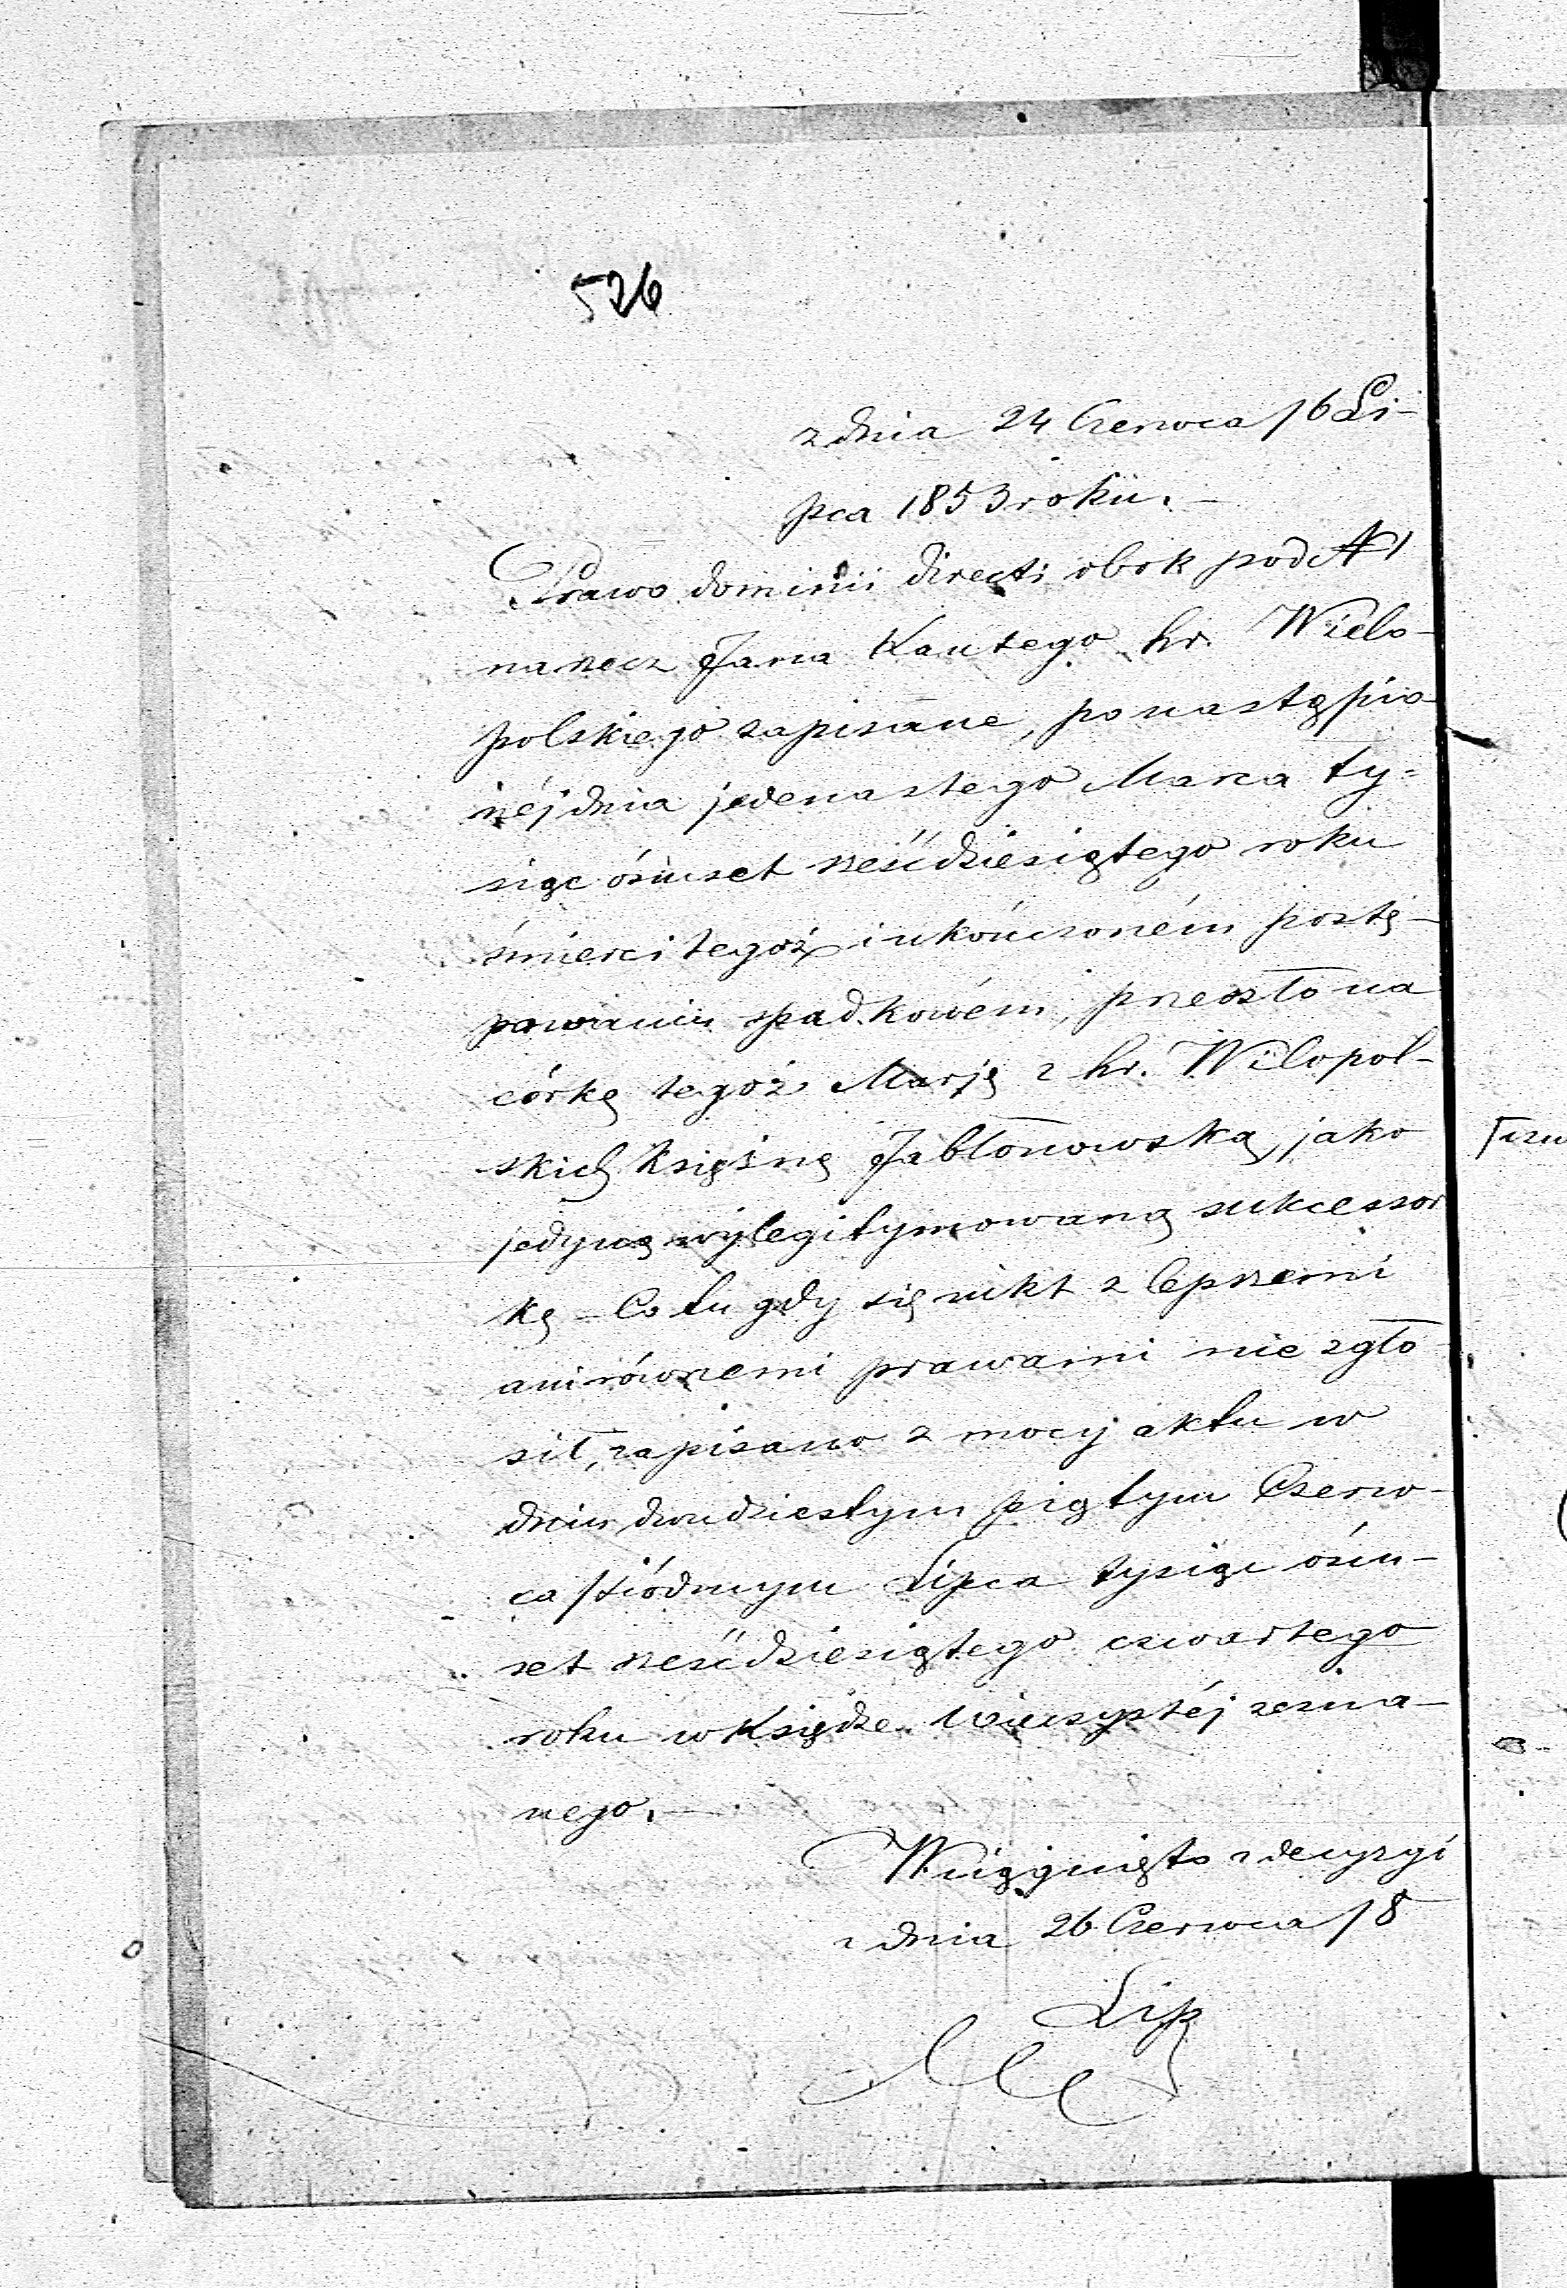 526
z dnia 24 Czerwca /6 Li-
pca 1853 roku. -
Prawo dominii directi obok pod N 1
na rzecz Jana Kantego hr. Wielo-
polskiego zapisane, po nastąpio-
néj dnia jedenastego Marca ty-
siąc ośmset sześćdziesiątego roku
śmierci tegoż i ukończoném postę-
powaniu spadkowém, przeszło na
córkę tegoż Marję z hr. Wielopol-
skich Księżnę Jabłonowską, jako
jedyną wylegitymowaną sukcessor
kę - Co tu gdy się nikt z lepszemi
ani równemi prawami nie zgło-
sił, zapisano z mocy aktu w
dniu dwudziestym piątym Czerw-
ca /siódmym Lipca tysiąc ośm-
set sześćdziesiątego czwartego
roku w Księdze Wieczystéj zezna-
nego. -
Wciągnięto z decyzyi
z dnia 26 Czerwca /8
Lip